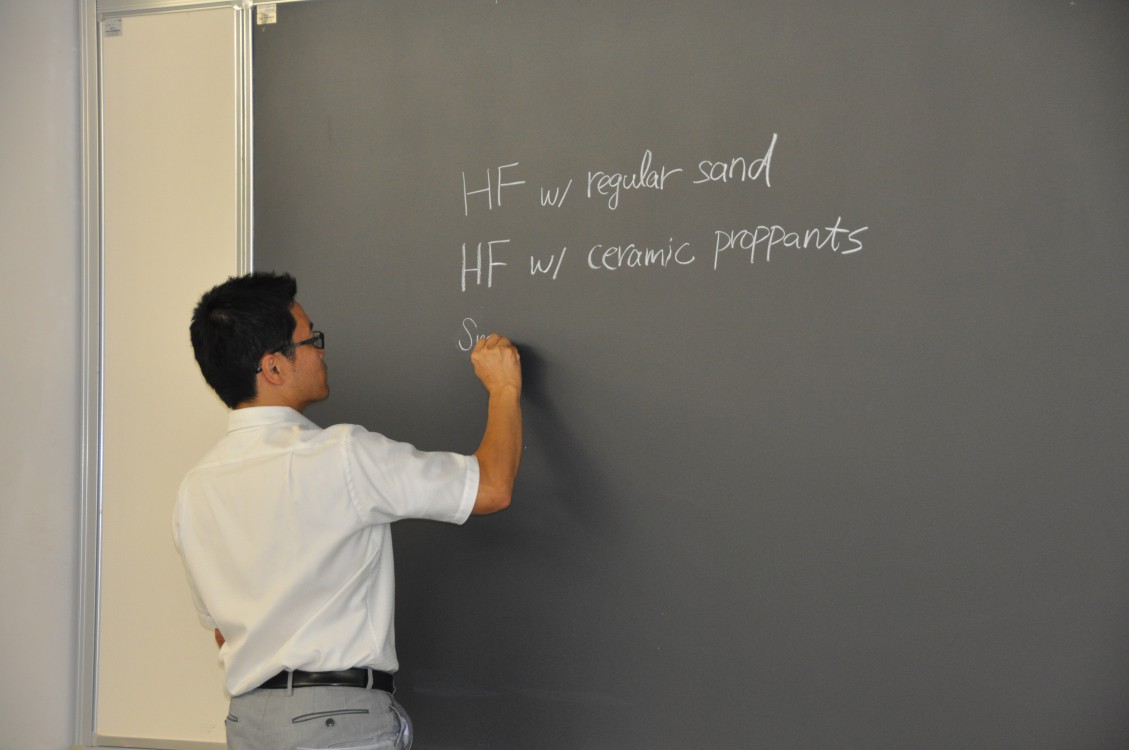 HF w/ regular sand
HF w/ ceramic proppants